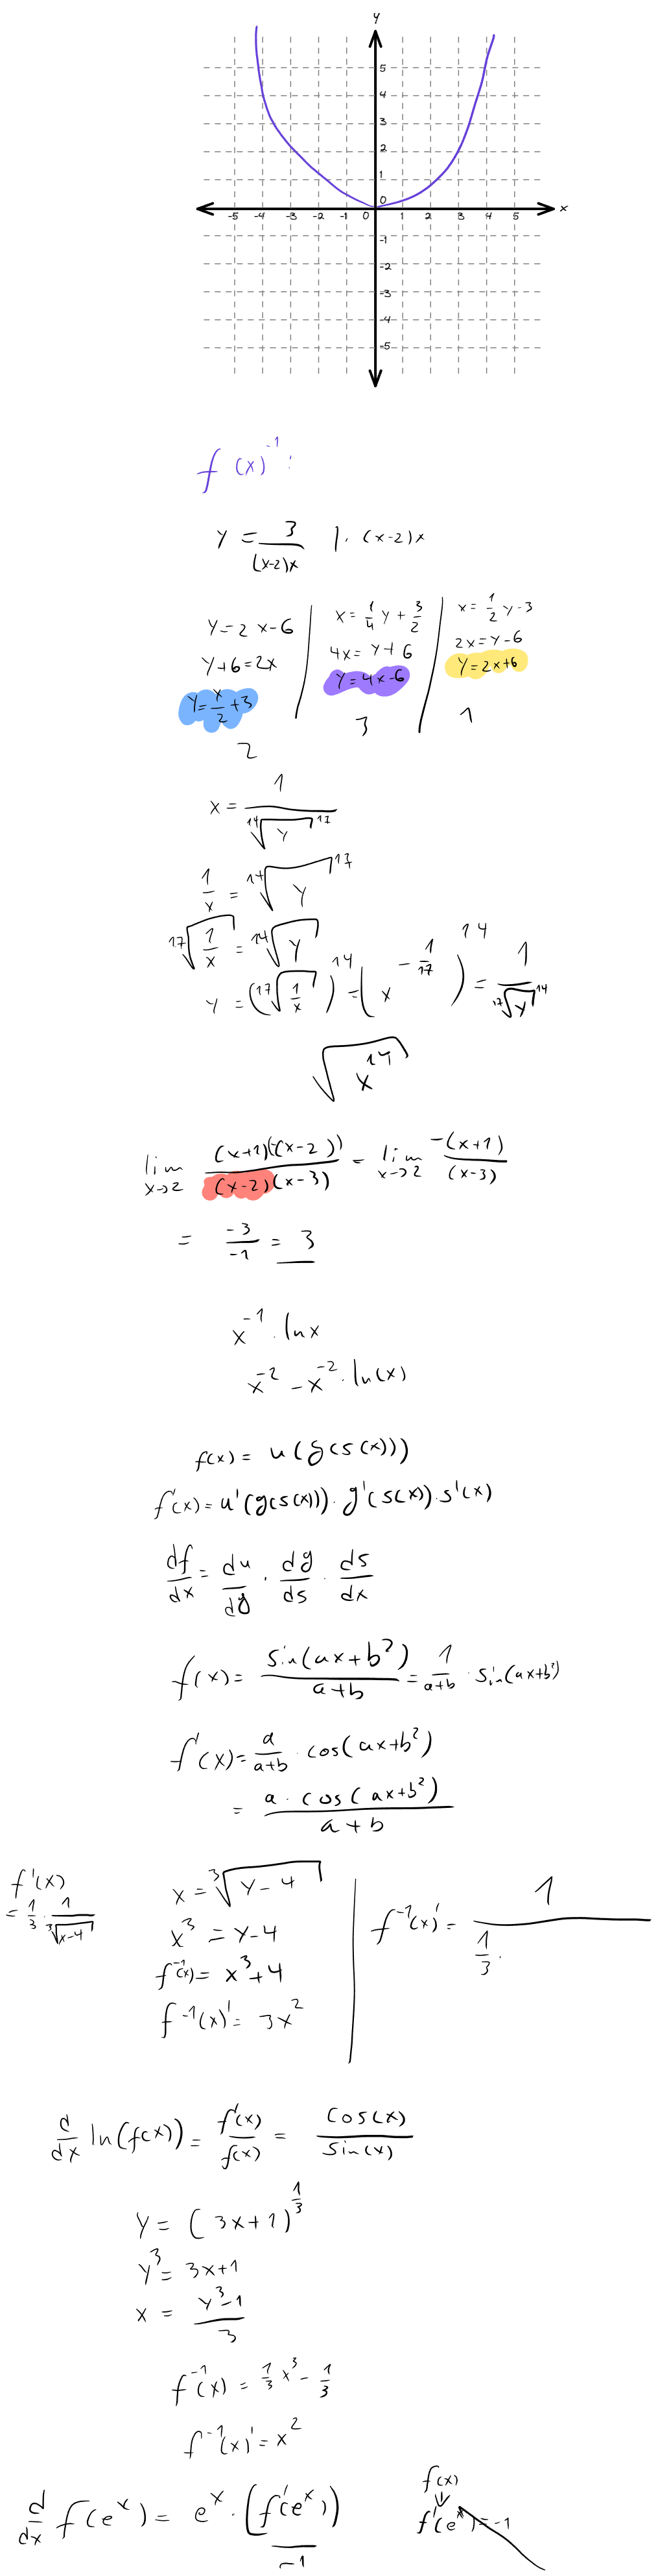 y
5
4
3
2
1
0
-5 -4 -3 -2 -1 0 1 2 3 4 5 x
-1
-2
-3
-4
-5
f(x)^-1:
y = 3/((x-2)x) | · (x-2)x
y = 2x-6
y+6 = 2x
y = x/2 + 3
2
x = 1/4 y + 3/2
4x = y + 6
y = 4x-6
3
x = 1/2 y - 3
2x = y - 6
y = 2x+6
1
x = 1/(¹⁴√y)^17
1/x = (¹⁴√y)^17
¹⁷√(1/x) = ¹⁴√y
y = (¹⁷√(1/x))^14 = (x^(-1/17))^14 = 1/(¹⁷√x)^14
√(x^14)
lim x→2 (x+1)(-(x-2))/((x-2)(x-3)) = lim x→2 -(x+1)/(x-3)
= -3/-1 = 3
x^-1 · ln x
x^-2 - x^-2 · ln(x)
f(x) = u(g(s(x)))
f'(x) = u'(g(s(x))) · g'(s(x)) · s'(x)
df/dx = du/dg · dg/ds · ds/dx
f(x) = sin(ax+b²)/(a+b) = 1/(a+b) · sin(ax+b²)
f'(x) = a/(a+b) · cos(ax+b²)
= a · cos(ax+b²)/(a+b)
f'(x)
= 1/3 · 1/³√(x-4)
x = ³√(y-4)
x³ = y-4
f^-1(x) = x³+4
f^-1(x)' = 3x²
f^-1(x)' = 1/(1/3 ·
d/dx ln(f(x)) = f'(x)/f(x) = cos(x)/sin(x)
y = (3x+1)^(1/3)
y³ = 3x+1
x = (y³-1)/3
f^-1(x) = 1/3 x³ - 1/3
f^-1(x)' = x²
d/dx f(e^x) = e^x · (f'(e^x))
-1
f(x)
↓
f'(e^x) = -1